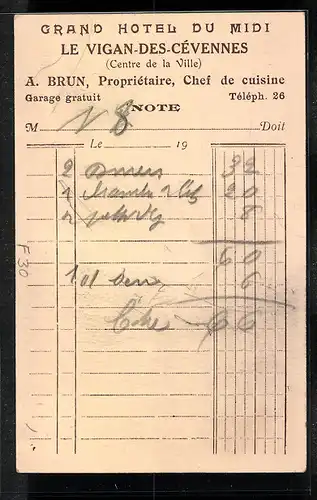 GRAND HOTEL DU MIDI
LE VIGAN-DES-CÉVENNES
(Centre de la Ville)
A. BRUN, Propriétaire, Chef de cuisine
Garage gratuit Téléph. 26
NOTE
M N 8 Doit
Le 19
2 32
1 20
2 8
60
10% 6
66
F30